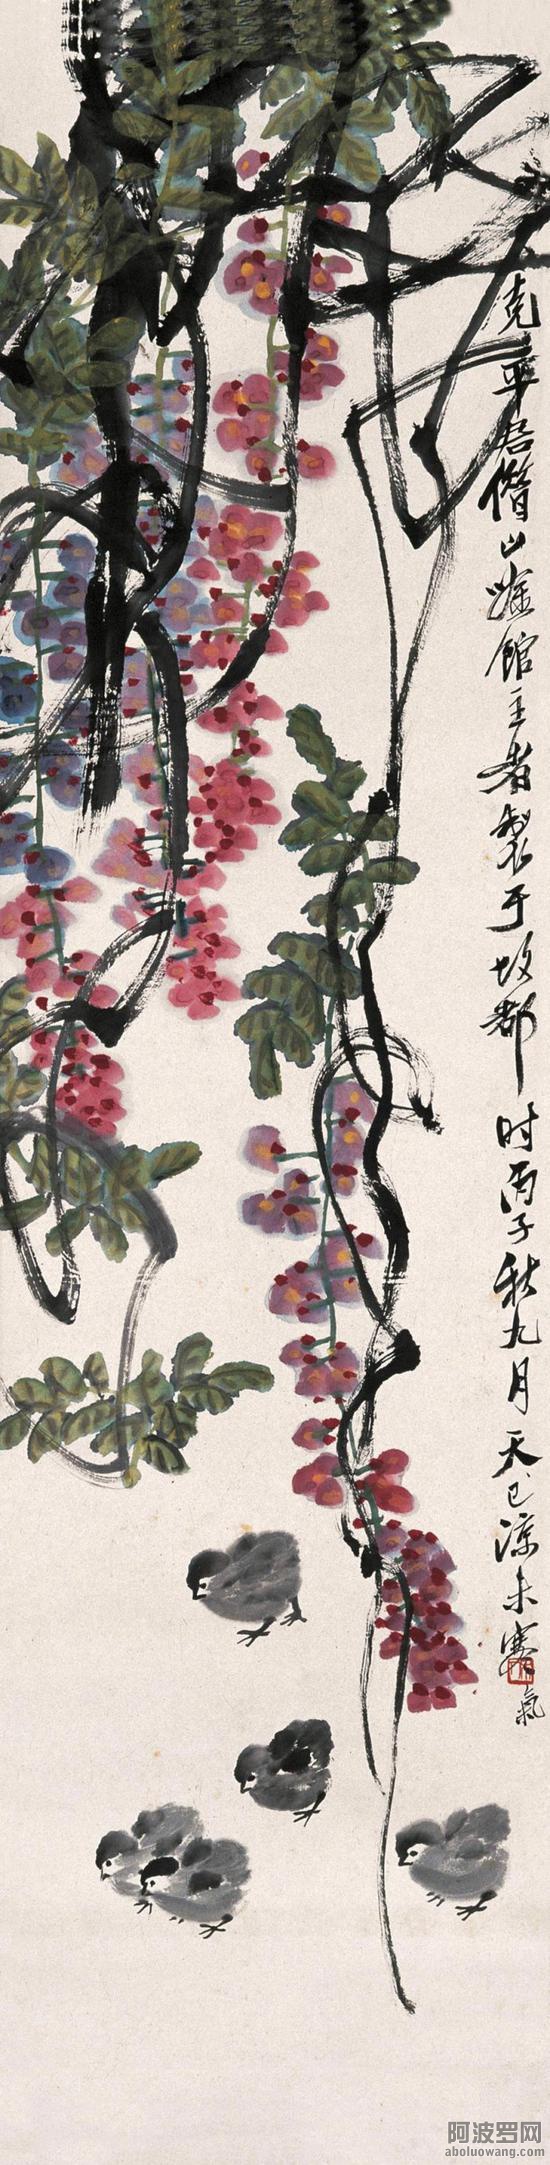 克平居借山吟馆主者製于故都时丙子秋九月天已凉未寒
氣
阿波罗网
aboluowang.com